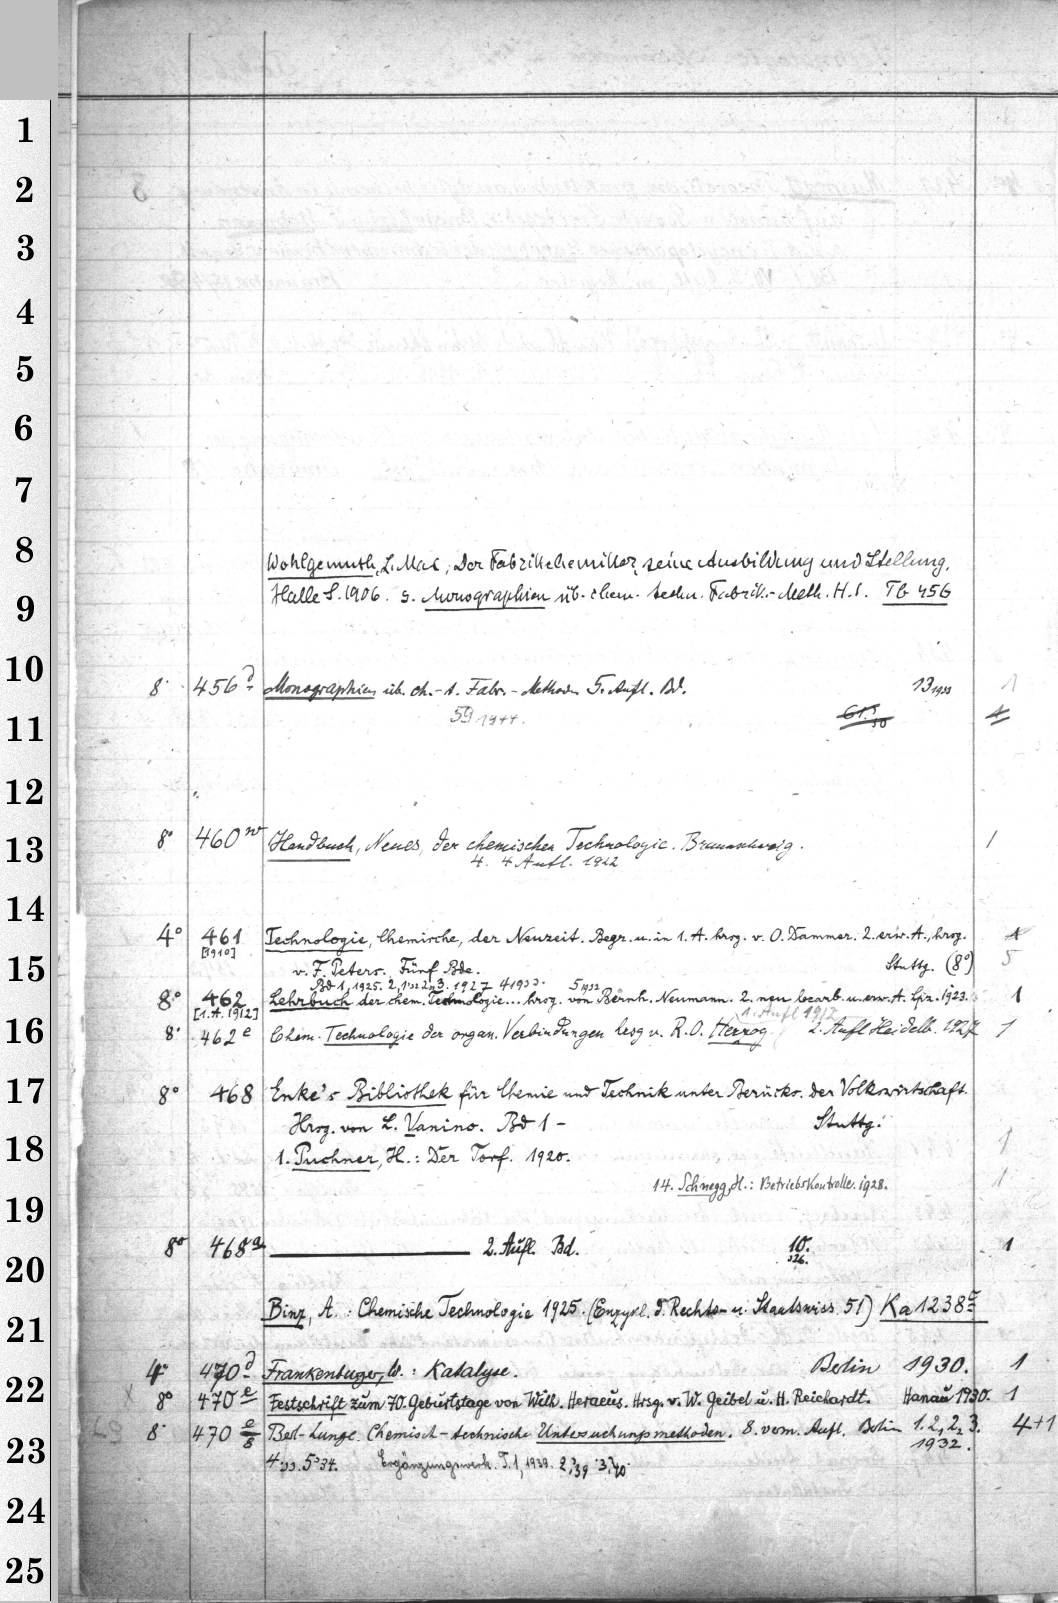 1
2
3
4
5
6
7
8
Wohlgemuth, L. Max, Der Fabrikchemiker, seine Ausbildung und Stellung.
Halle S. 1906. s. Monographien üb. chem. techn. Fabrik.-Meth. H. 1. Tb 456
9
10
8° 456 d Monographien üb. ch.-t. Fabr.-Methoden 5. Aufl. Bd. 13 1933 1
59 1944.
11
12
8° 460 n Handbuch, Neues, der chemischen Technologie. Braunschweig. 1
4. 4 Aufl. 1922
13
14
4° 461 Technologie, Chemische, der Neuzeit. Begr. u. in 1. A. hrsg. v. O. Dammer. 2. erw. A., hrsg.
[1910] v. F. Peters. Fünf Bde. Stuttg. (8°) 5
15
Bd 1, 1925. 2, 1932, 3. 1927 4 1933. 5 1932
8° 462 Lehrbuch der chem. Technologie... hrsg. von Bernh. Neumann. 2. neu bearb. u. erw. A. Lpz. 1923. 1
[1. A. 1912] 1. Aufl 1912
16
8° 462 e Chem. Technologie der organ. Verbindungen hrsg v. R. O. Herzog 2. Aufl Heidelb. 1927 1
17
8° 468 Enke's Bibliothek für Chemie und Technik unter Berücks. der Volkswirtschaft.
Hrsg. von L. Vanino. Bd 1 - Stuttg.
18
1. Puchner, H.: Der Torf. 1920. 1
14. Schnegg, H.: Betriebskontrolle. 1928. 1
19
8° 468 a 2. Aufl. Bd. 10. 1
926.
20
Binz, A.: Chemische Technologie 1925. (Enzykl. d. Rechts- u. Staatswiss. 51) Ka 1238
21
4° 470 d Frankenburger, W.: Katalyse. Berlin 1930. 1
22
8° 470 e Festschrift zum 70. Geburtstage von Wilh. Heraeus. Hrsg. v. W. Geibel u. H. Reichardt. Hanau 1930. 1
8° 470 e/8 Berl-Lunge Chemisch-technische Untersuchungsmethoden. 8. verm. Aufl. Berlin 1. 2,1 2,2 3. 4+1
23
1932.
4 33. 5 34. Ergänzungswerk. T. 1, 1939. 2, 39 3, 40
24
25